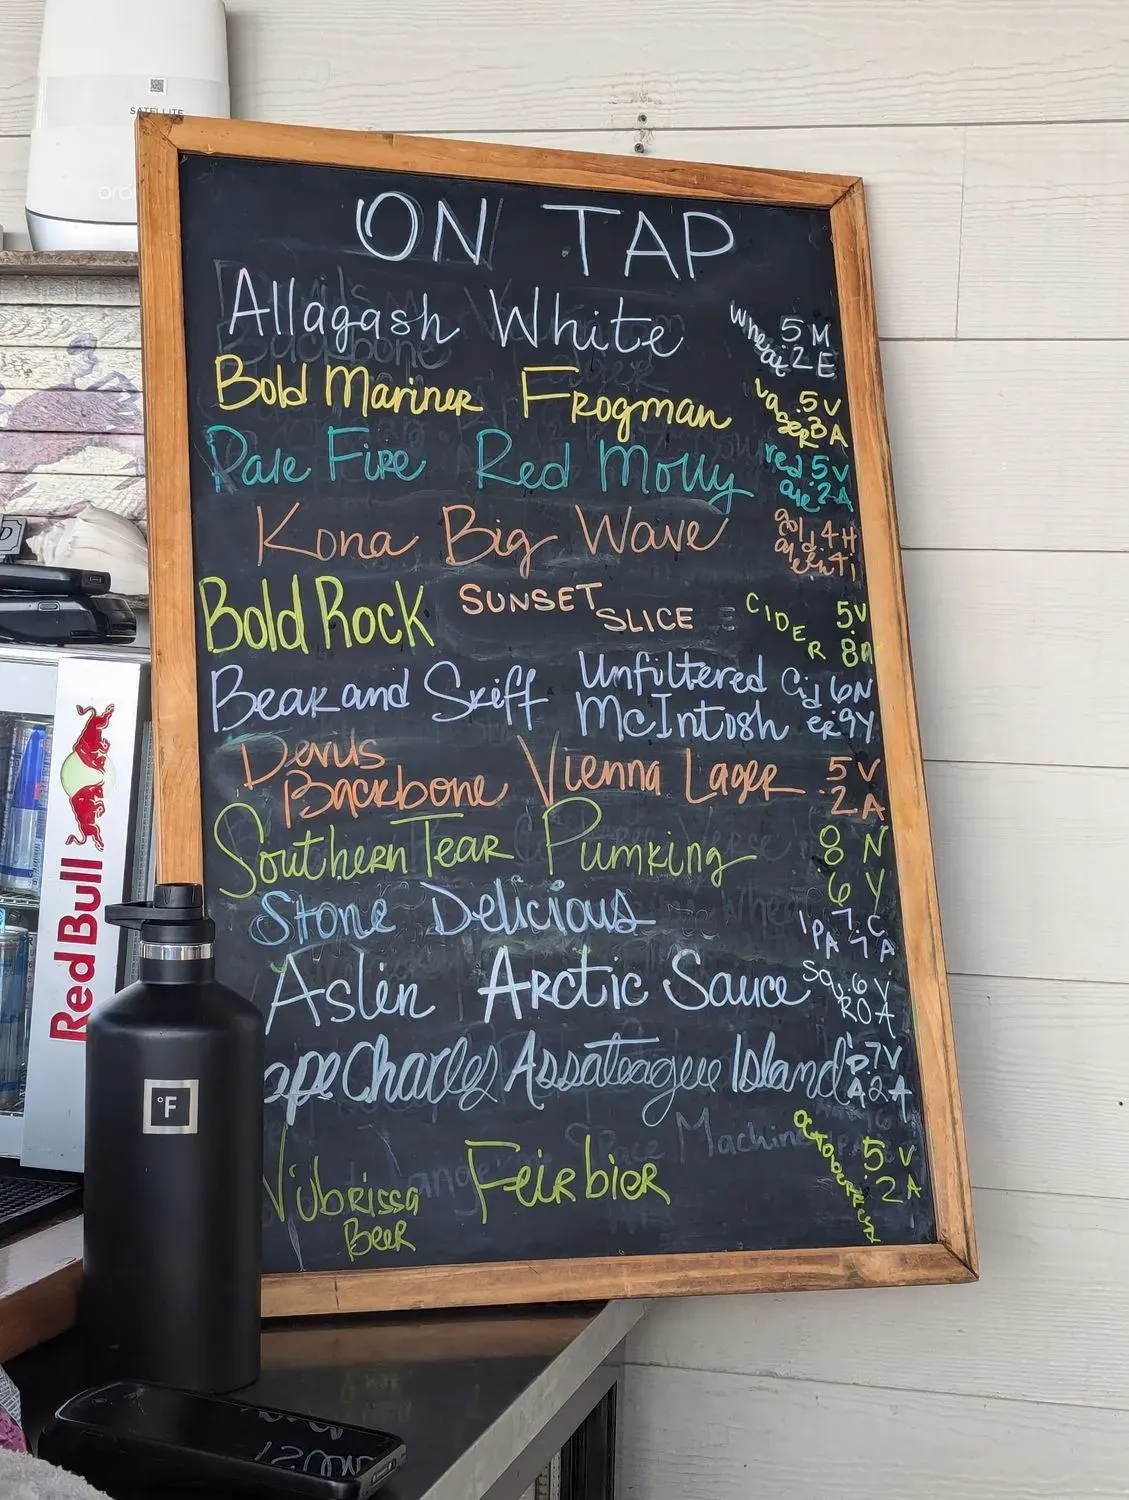 SATELLITE
orbi
ON TAP
Allagash White Wheat 5.2 ME
Bold Mariner Frogman Lager 5.3 VA
Pale Fire Red Molly red ale 5.2 VA
Kona Big Wave gold ale 4.4 HI
Bold Rock SUNSET SLICE CIDER 5.8 VA
Beak and Skiff Unfiltered McIntosh Cider 6.9 NY
Devils Backbone Vienna Lager 5.2 VA
Southern Tear Pumking 8.6 NY
Stone Delicious IPA 7.7 CA
Aslin Arctic Sauce Sour 6.0 VA
ape Charles Assateague Island IPA 7.2 VA
Vibrissa Beer Feirbier 5.2 VA
Space Machine
Red Bull
°F